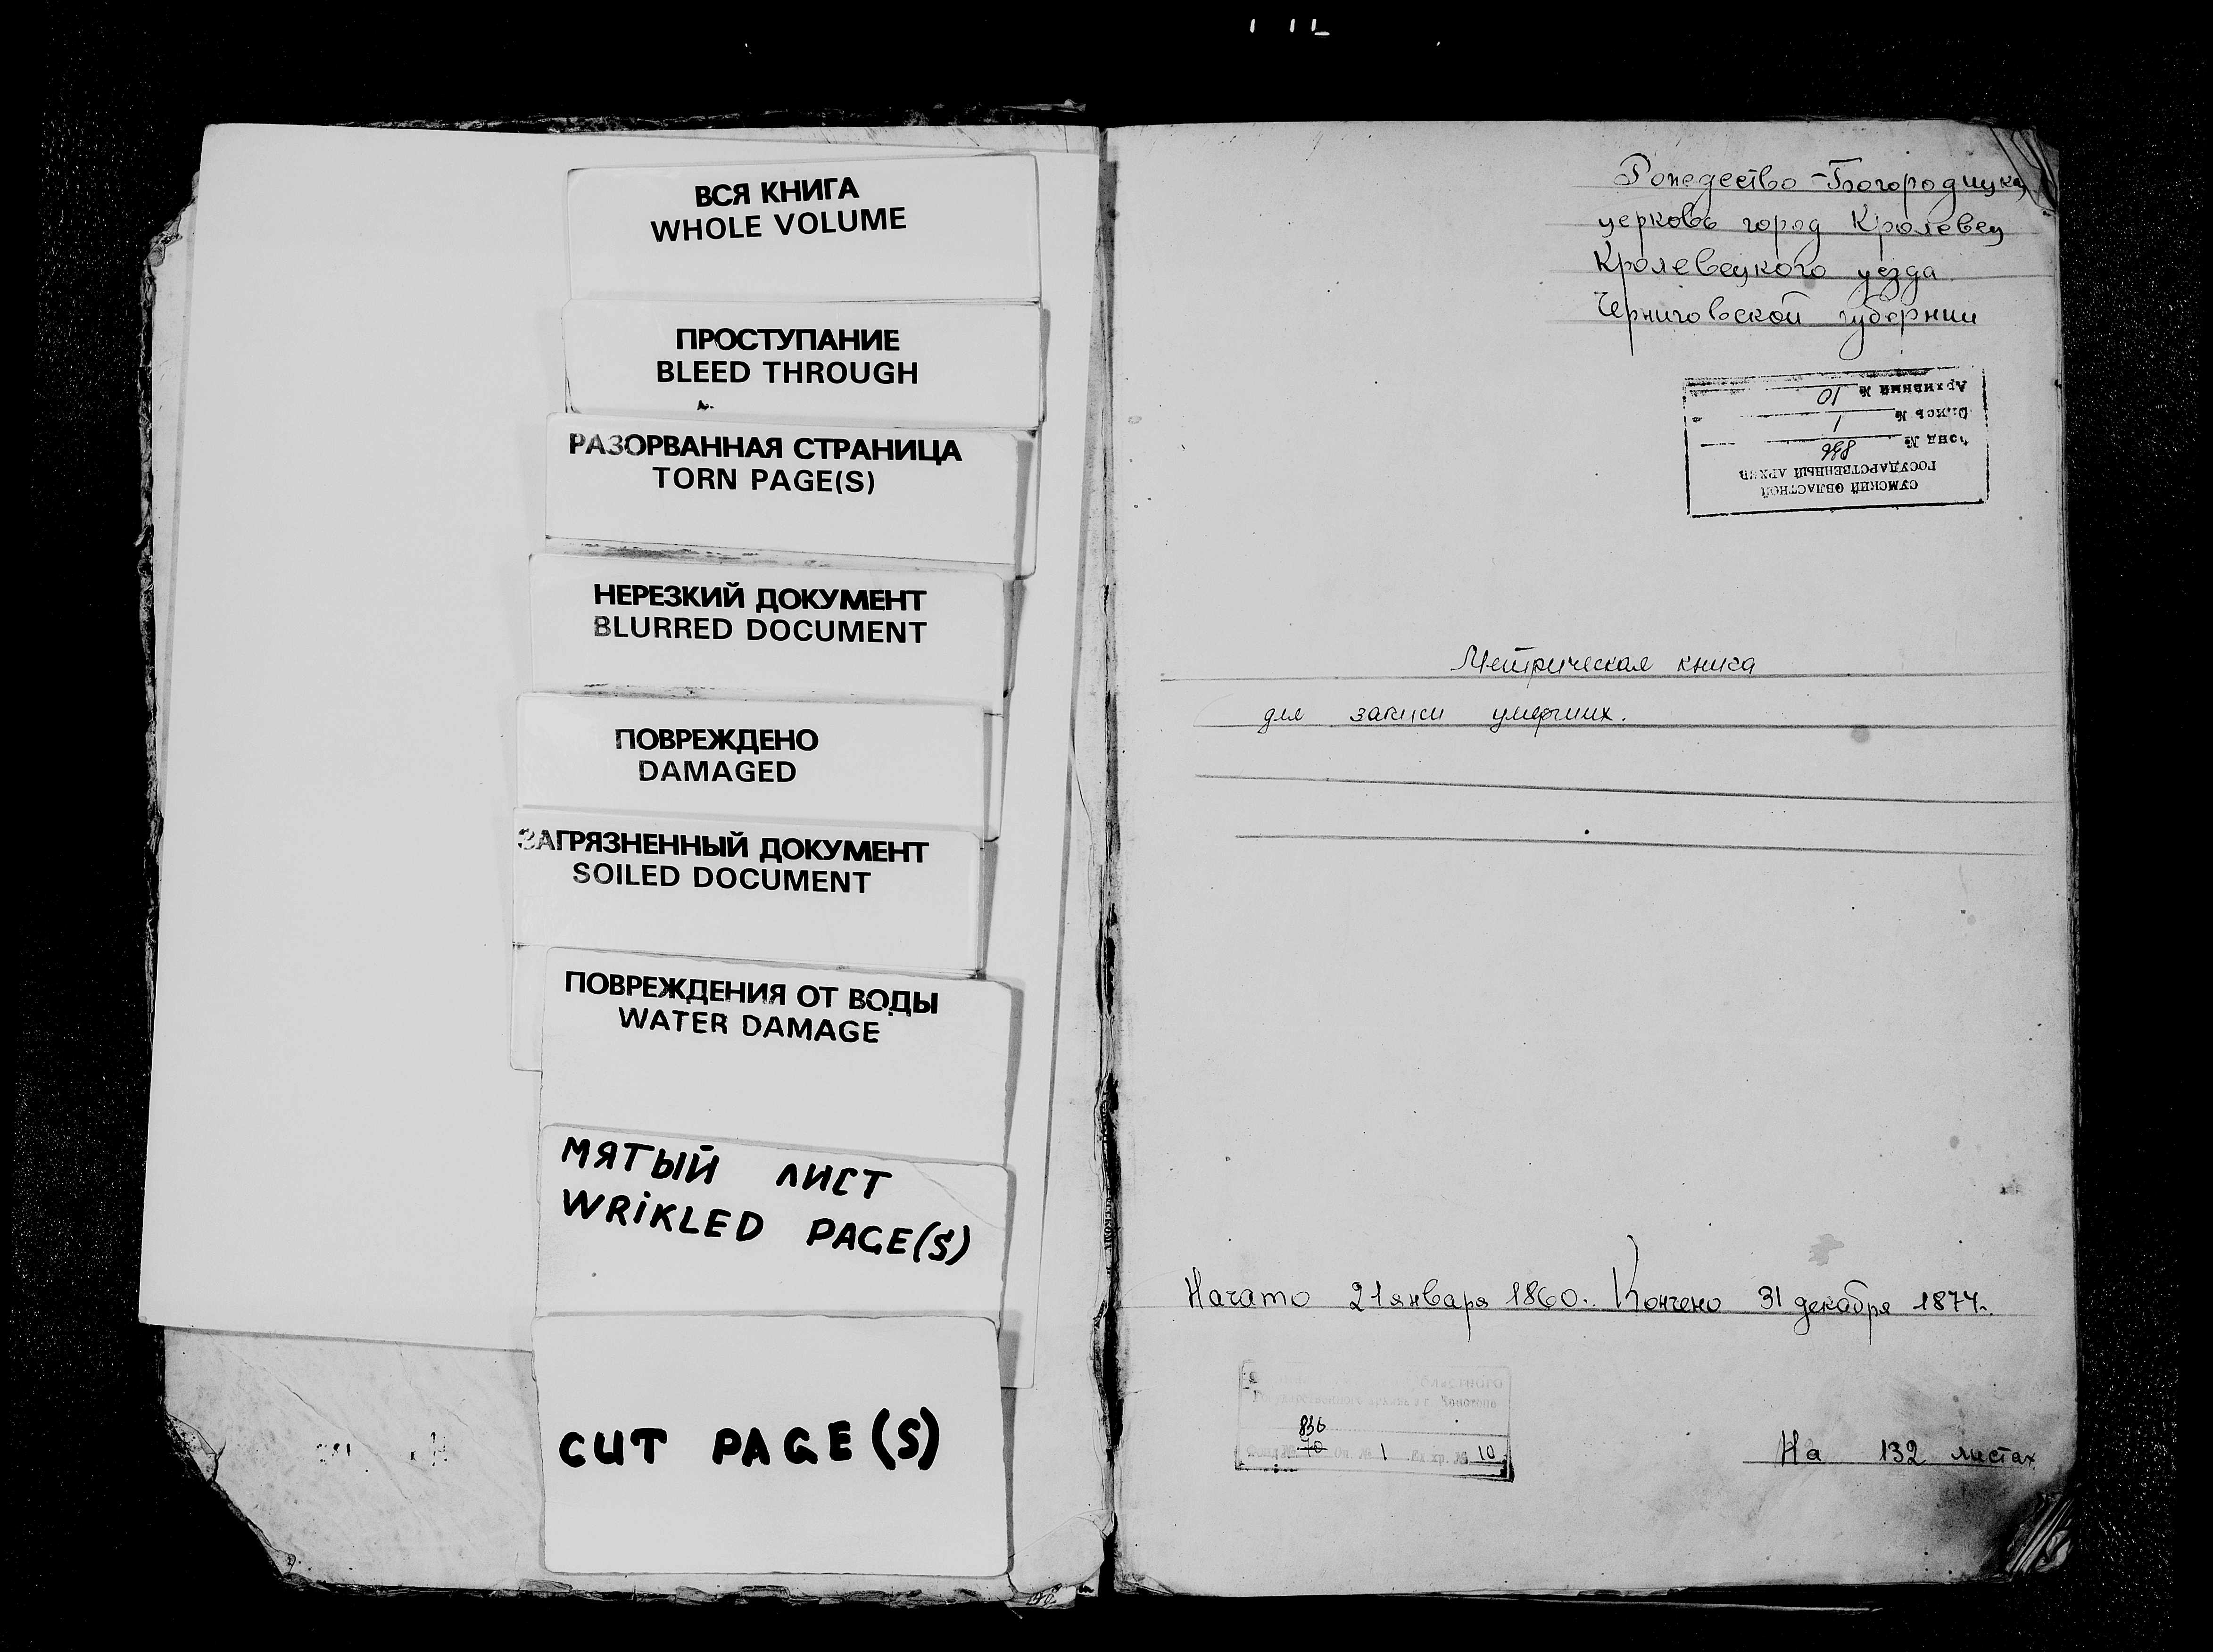 ВСЯ КНИГА
WHOLE VOLUME
ПРОСТУПАНИЕ
BLEED THROUGH
РАЗОРВАННАЯ СТРАНИЦА
TORN PAGE(S)
НЕРЕЗКИЙ ДОКУМЕНТ
BLURRED DOCUMENT
ПОВРЕЖДЕНО
DAMAGED
ЗАГРЯЗНЕННЫЙ ДОКУМЕНТ
SOILED DOCUMENT
ПОВРЕЖДЕНИЯ ОТ ВОДЫ
WATER DAMAGE
МЯТЫЙ ЛИСТ
WRIKLED PAGE(S)
CUT PAGE(S)
Рождество-Богородицкая
церковь город Кролевец
Кролевецкого уезда
Черниговской губернии
СУМСКИЙ ОБЛАСТНОЙ
ГОСУДАРСТВЕННЫЙ АРХИВ
Фонд № 836
Опись № 1
Архивный № 10
Метрическая книга
для записи умерших.
Начато 21 января 1860. Кончено 31 декабря 1874.
областного
Государственного архива в г. Конотопе
836
Фонд № 70 Оп. № 1 Ед. хр. № 10
На 132 листах